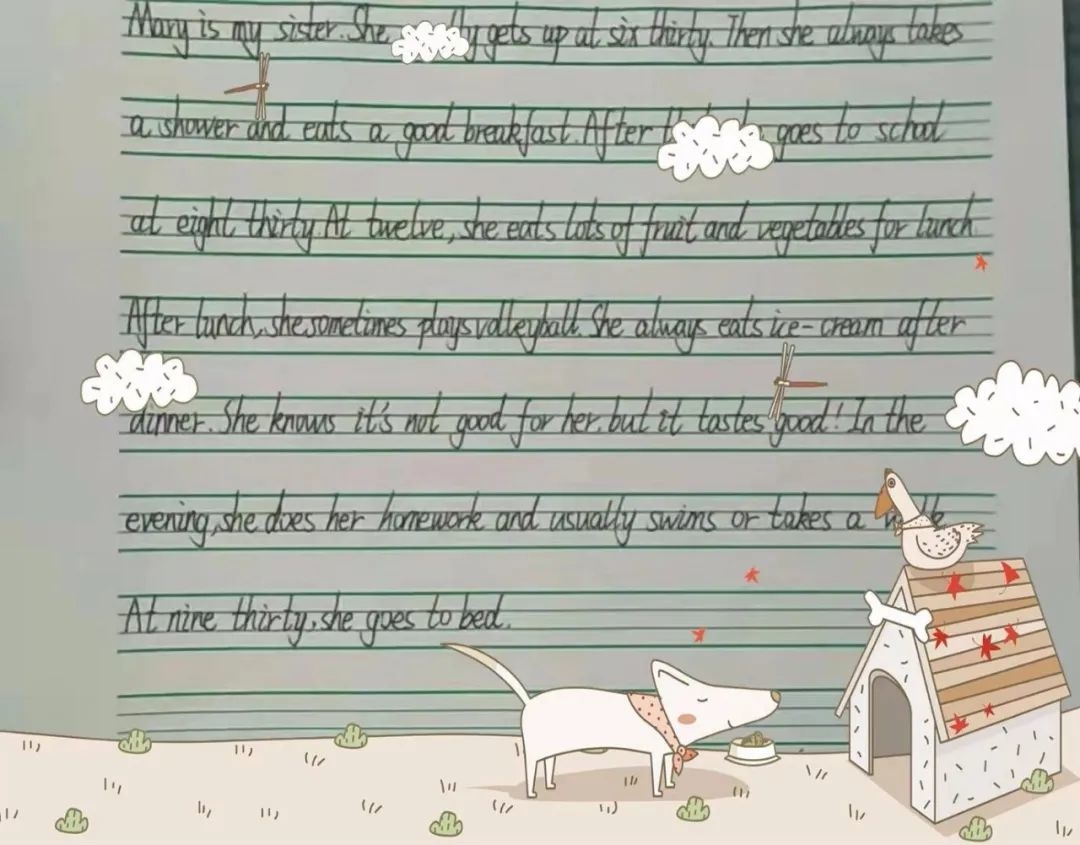 Mary is my sister. She gets up at six thirty. Then she always takes
a shower and eats a good breakfast. After goes to school
at eight thirty. At twelve, she eats lots of fruit and vegetables for lunch.
After lunch, she sometimes plays volleyball. She always eats ice-cream after
dinner. She knows it's not good for her, but it tastes good! In the
evening, she does her homework and usually swims or takes a
At nine thirty, she goes to bed.